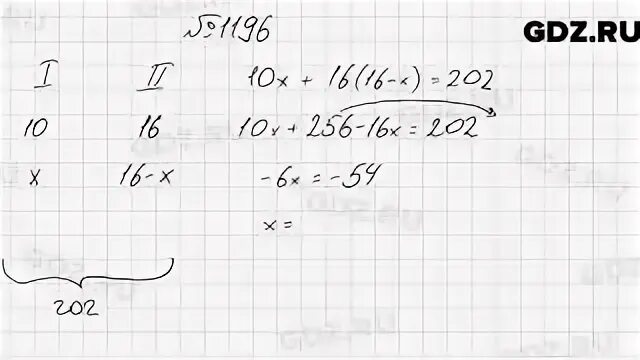 №1196
GDZ.RU
I II 10x + 16(16-x) = 202
10 16 10x + 256 - 16x = 202
x 16-x -6x = -54
x =
202